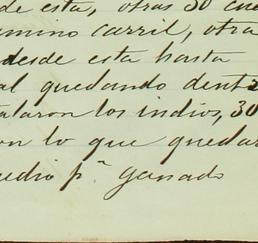 de esta, otras 30 cue
amino carril, otra
desde esta hasta
al quedando dentr
alaron los indios, 30
on lo que quedar
edio p.ª ganado